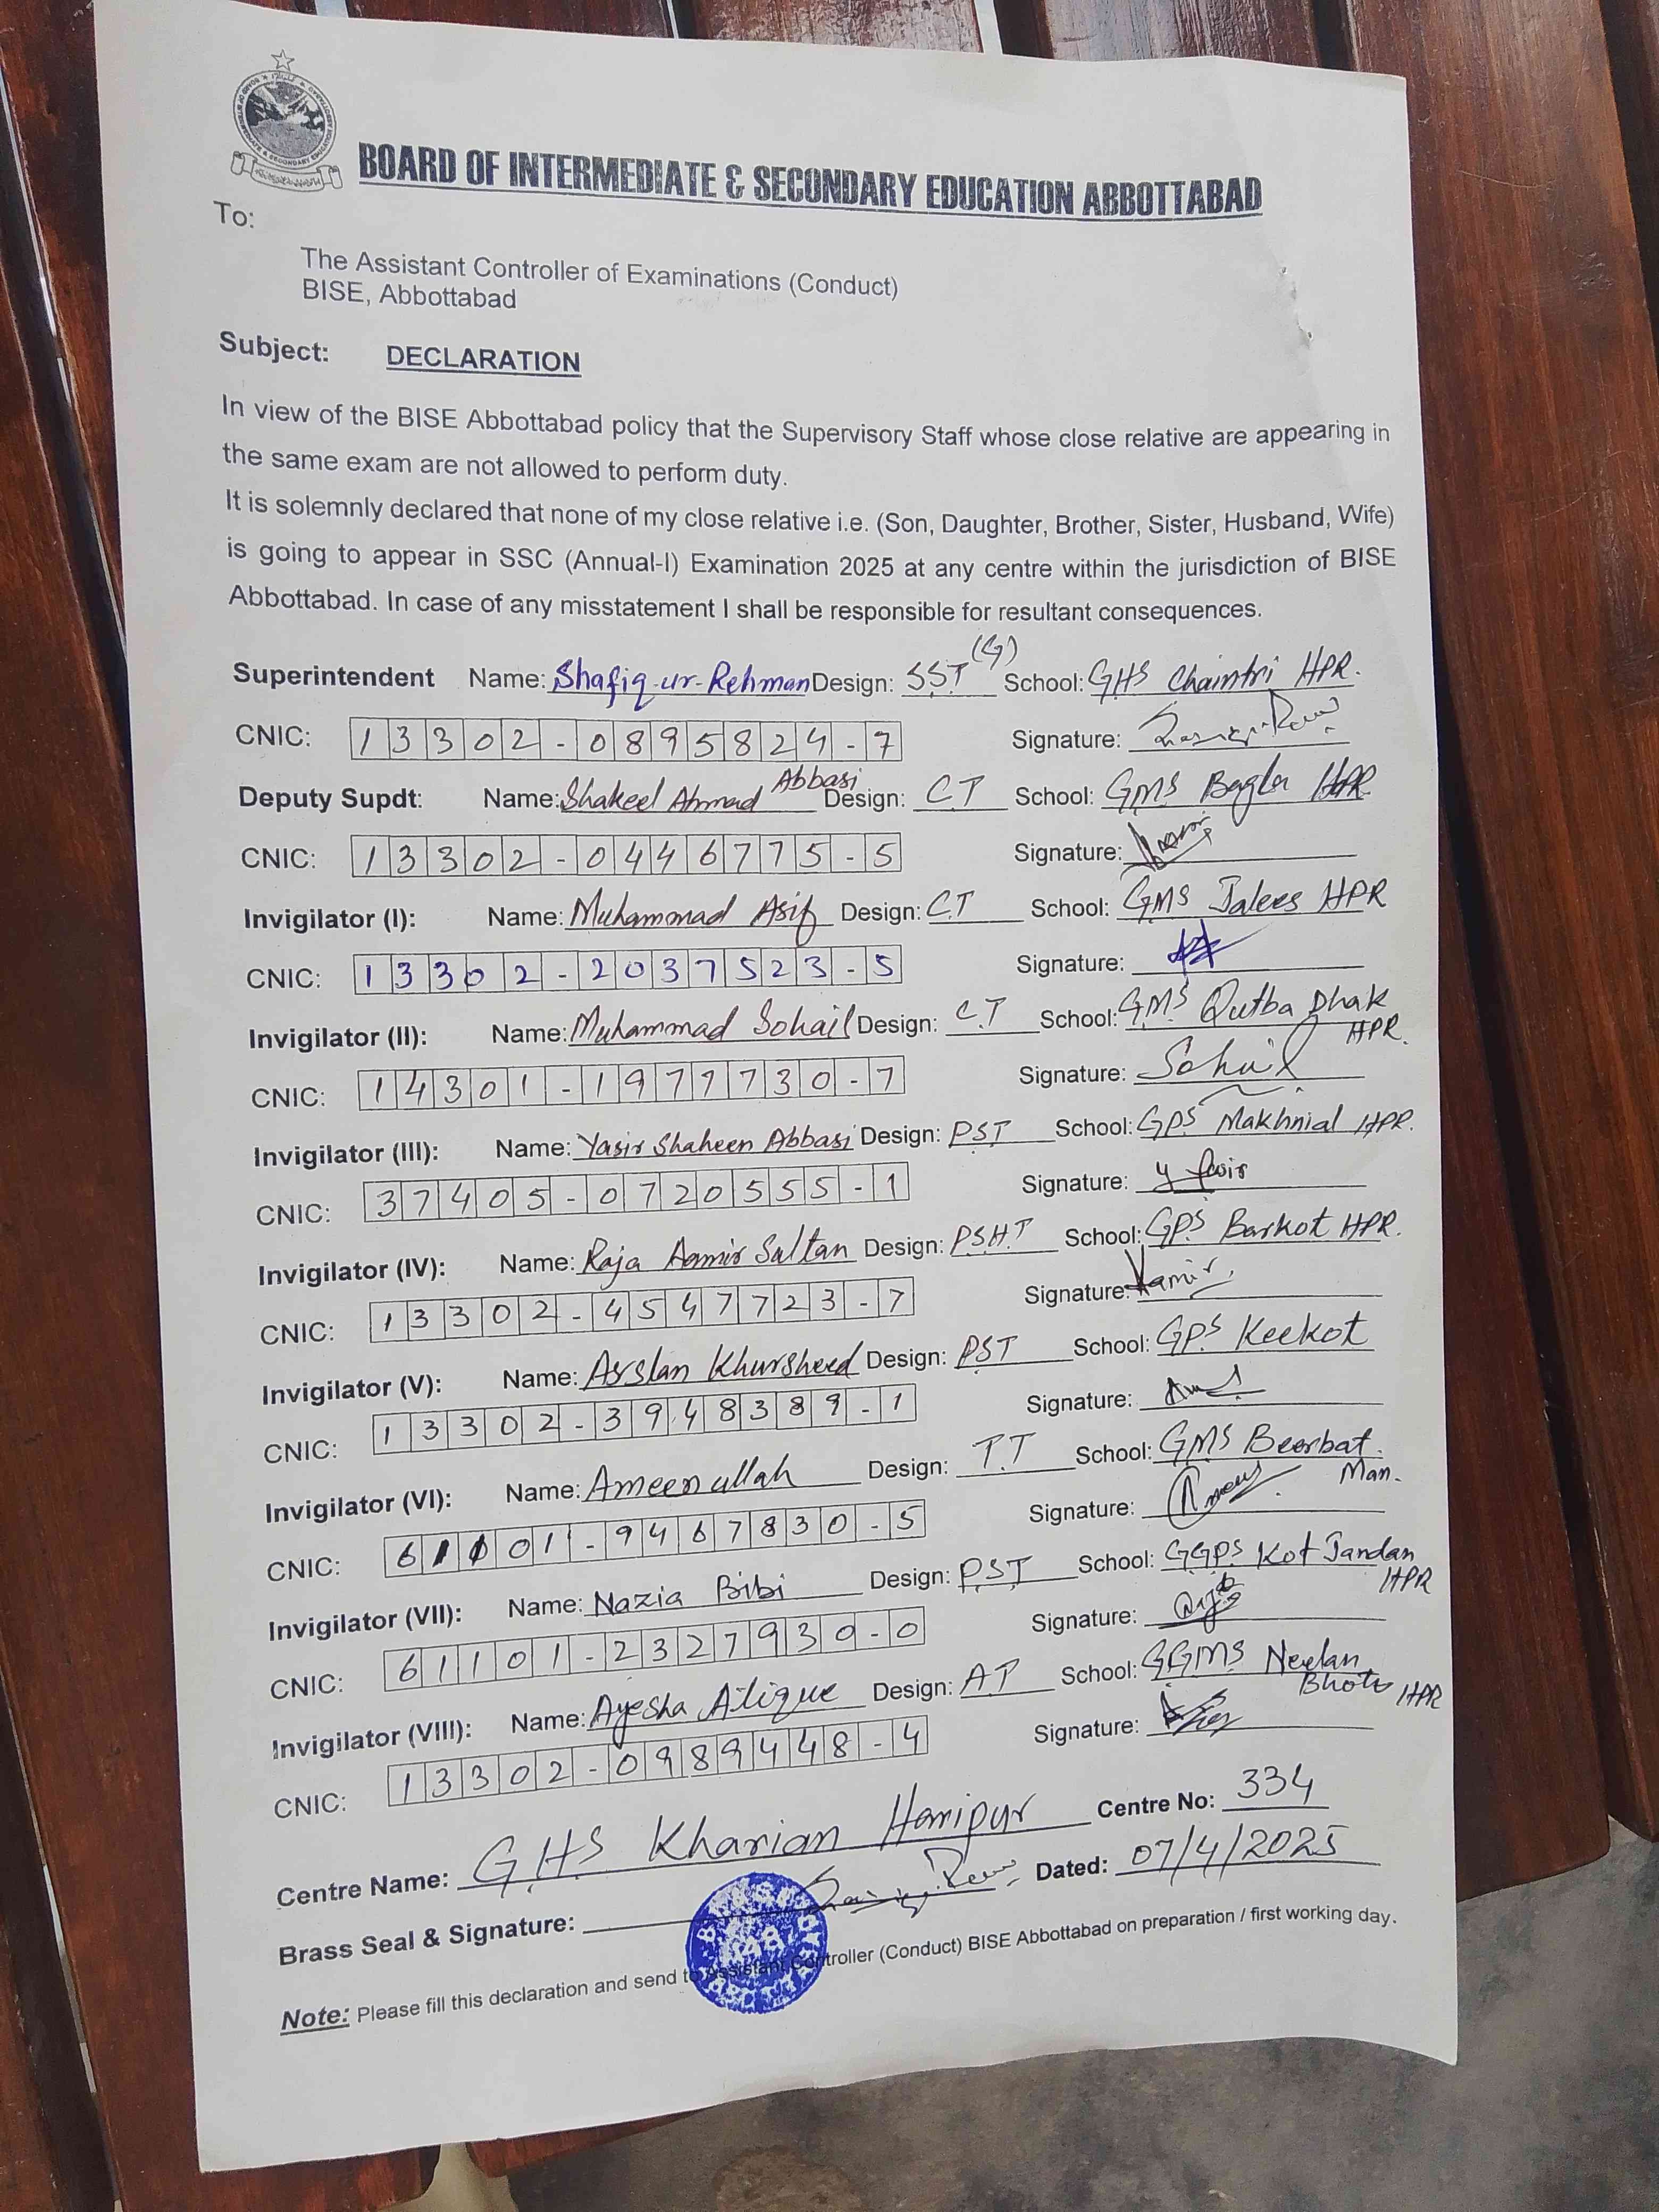 BOARD OF INTERMEDIATE & SECONDARY EDUCATION ABBOTTABAD
To:
The Assistant Controller of Examinations (Conduct)
BISE, Abbottabad
Subject: DECLARATION
In view of the BISE Abbottabad policy that the Supervisory Staff whose close relative are appearing in
the same exam are not allowed to perform duty.
It is solemnly declared that none of my close relative i.e. (Son, Daughter, Brother, Sister, Husband, Wife)
is going to appear in SSC (Annual-I) Examination 2025 at any centre within the jurisdiction of BISE
Abbottabad. In case of any misstatement I shall be responsible for resultant consequences.
Superintendent Name: Shafiq-ur-Rehman Design: SST (G) School: GHS Chaintri HPR.
CNIC: 13302-0895824-7 Signature:
Deputy Supdt: Name: Shakeel Ahmad Abbasi Design: C.T School: GMS Bagla HPR
CNIC: 13302-0446775-5 Signature:
Invigilator (I): Name: Muhammad Asif Design: C.T School: GMS Jalees HPR
CNIC: 13302-2037523-5 Signature:
Invigilator (II): Name: Muhammad Sohail Design: C.T School: GMS Qutba Dhak HPR.
CNIC: 14301-1977730-7 Signature: Sohail
Invigilator (III): Name: Yasir Shaheen Abbasi Design: PST School: GPS Makhnial HPR.
CNIC: 37405-0720555-1 Signature:
Invigilator (IV): Name: Raja Aamir Sultan Design: P.SH.T School: GPS Barkot HPR.
CNIC: 13302-4547723-7 Signature: Aamir
Invigilator (V): Name: Arslan Khursheed Design: PST School: GPS Keekot
CNIC: 13302-3948389-1 Signature:
Invigilator (VI): Name: Ameenullah Design: T.T School: GMS Beerbat Man.
CNIC: 61101-9467830-5 Signature:
Invigilator (VII): Name: Nazia Bibi Design: P.S.T School: GGPS Kot Jandan HPR
CNIC: 61101-2327930-0 Signature:
Invigilator (VIII): Name: Ayesha Atique Design: A.T School: GGMS Neelan Bhoto HPR
CNIC: 13302-0989448-4 Signature:
Centre Name: G.H.S Kharian Haripur Centre No: 334
Brass Seal & Signature: Dated: 07/4/2025
Note: Please fill this declaration and send to Assistant Controller (Conduct) BISE Abbottabad on preparation / first working day.